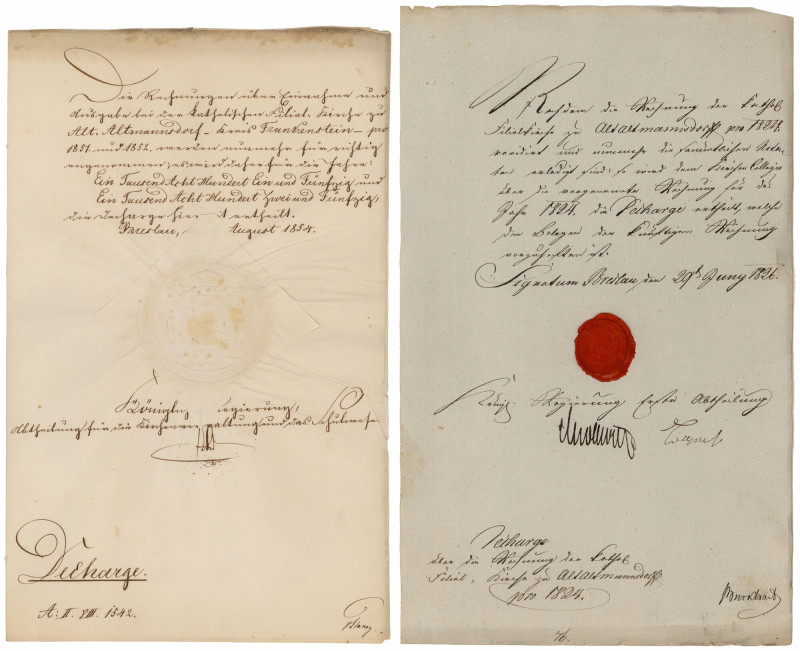 Die Rechnungen über Einnahme und
Ausgabe bei der katholischen Filial-Kirche zu
Alt-Altmannsdorf - Kreis Frankenstein - pro
1851 und 1852, werden nunmehr für richtig
angenommen, es wird daher für die Jahre:
Ein Tausend Acht Hundert Ein und Fünfzig und
Ein Tausend Acht Hundert Zwei und Fünfzig,
die Decharge hier it ertheilt.
Breslau, August 1854.
Königl egierung,
Abtheilung für die Kirchenver altung und das Schulwesen
Decharge.
A: II. VIII. 1542.
Nachdem die Rechnung der kathol
Filialkirche zu Altaltmannsdorff pro 1824.
revidirt und nunmehr die saemmtlichen
erledigt sind: so wird dem Kirchen Collegio
über die vorgenannte Rechnung für das
Jahr 1824. die Decharge ertheilt, welche
den Belegen der künftigen Rechnung
vorzuheften ist.
Signatum Breslau, den 29th Juny 1826.
Königl. Regierung Erste Abtheilung
Decharge
über die Rechnung der kathol
Filial-Kirche zu Altaltmannsdorff
pro 1824.